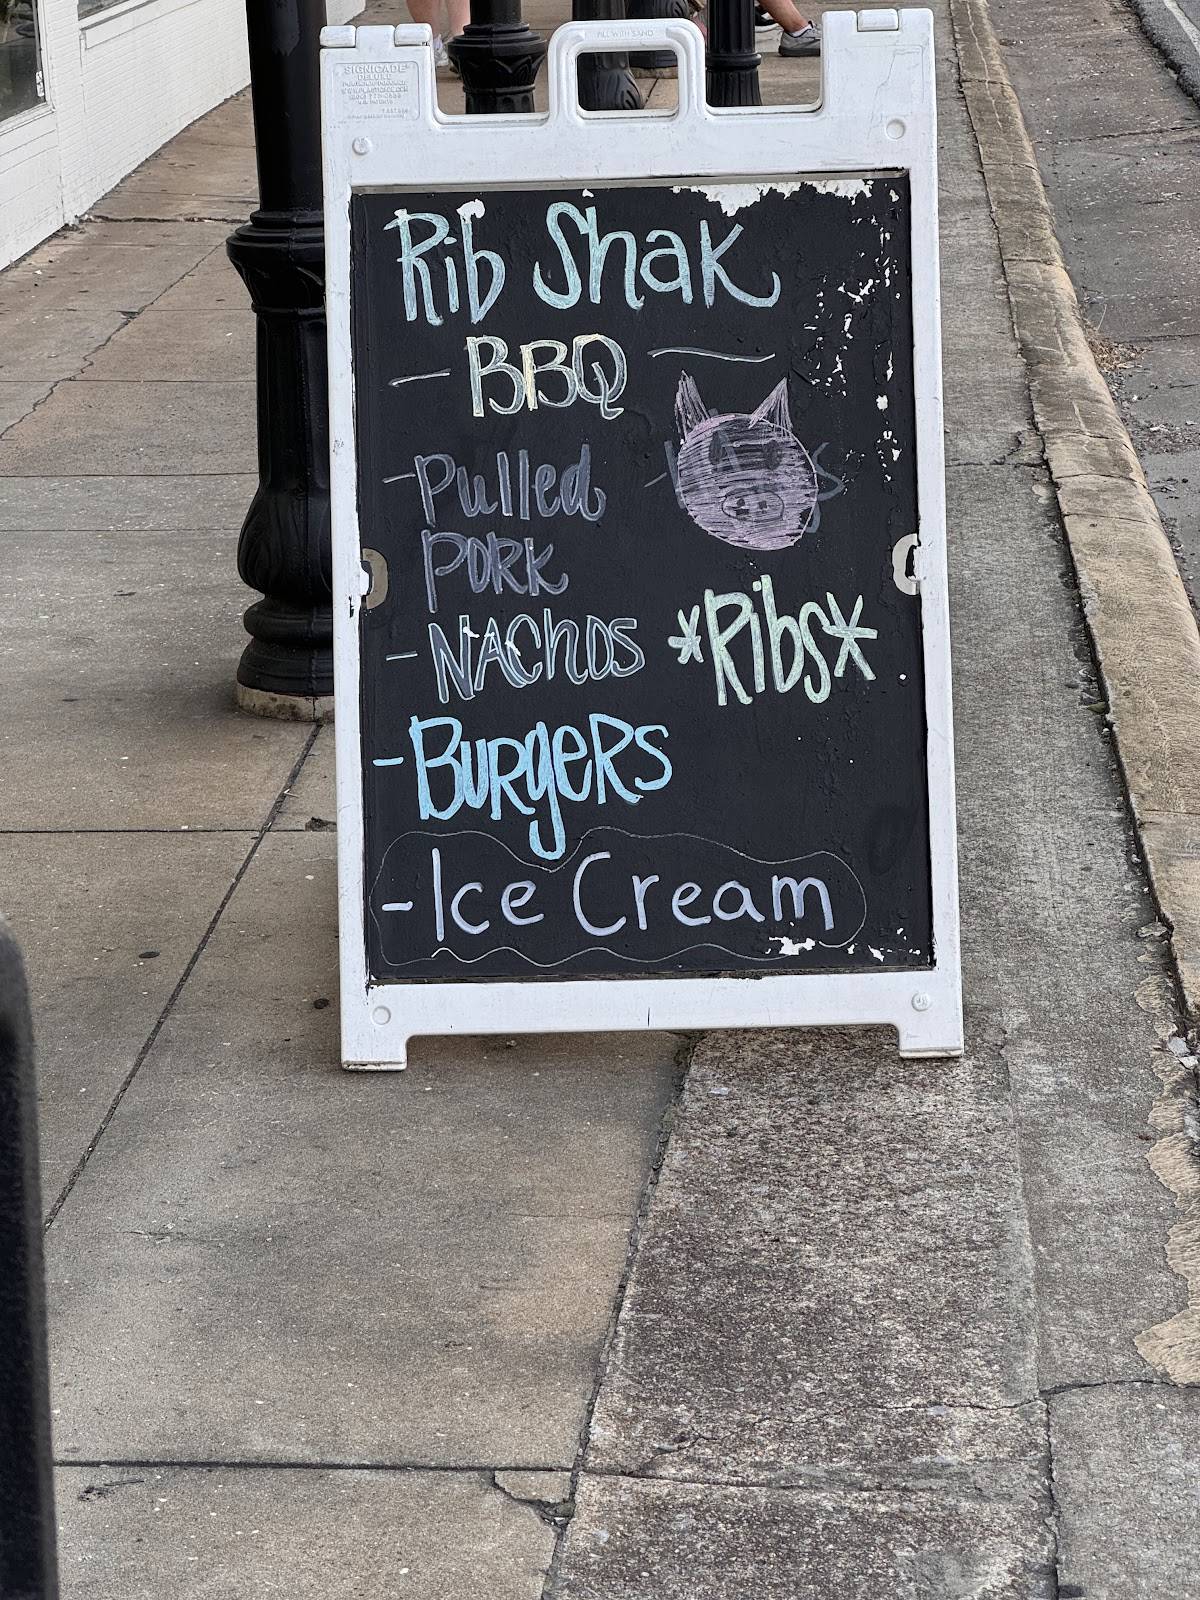 FILL WITH SAND
SIGNICADE
DELUXE
Rib Shak
- BBQ -
- Pulled
PORK
- NACHOS
*Ribs*
- BURgeRS
- Ice Cream